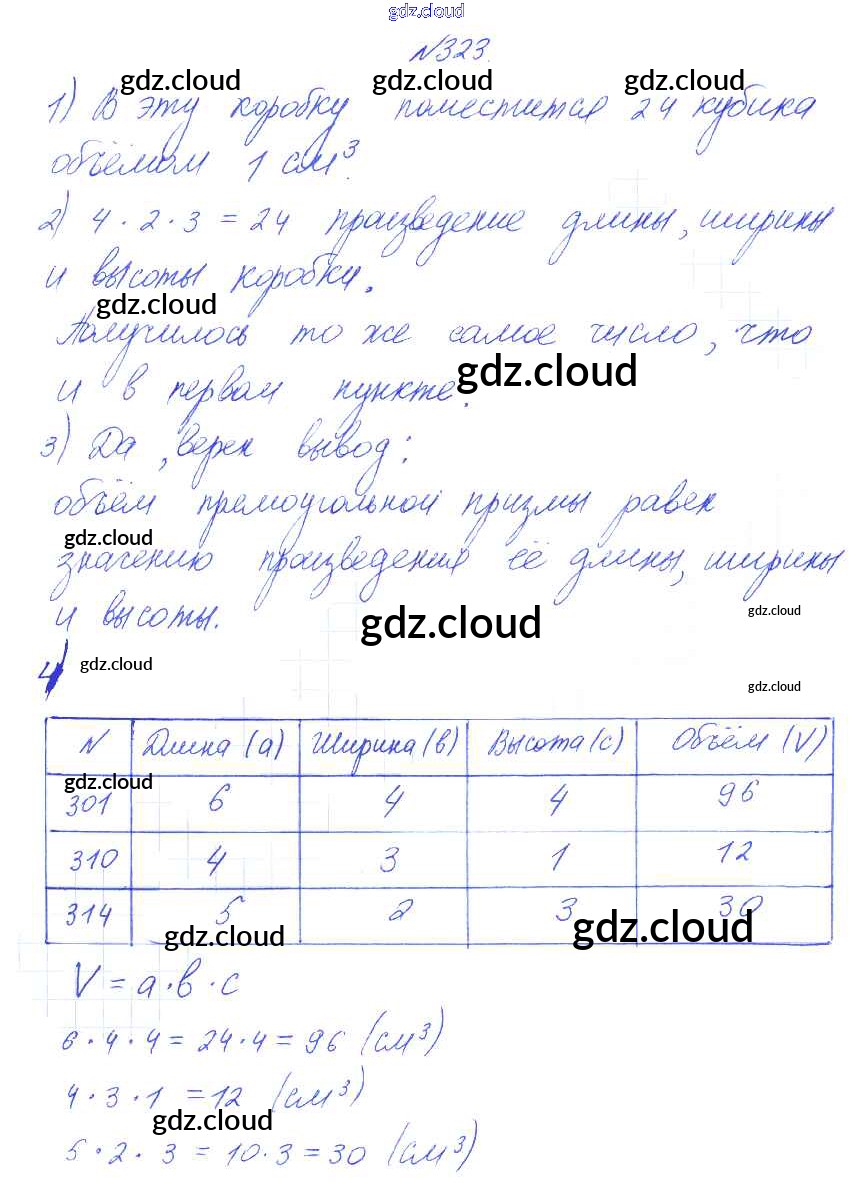 gdz.cloud
№323.
gdz.cloud gdz.cloud gdz.cloud
1) В эту коробку поместится 24 кубика
объёмом 1 см³.
2) 4 · 2 · 3 = 24 произведение длины, ширины
и высоты коробки.
gdz.cloud
Получилось то же самое число, что
gdz.cloud
и в первом пункте.
3) Да, верен вывод:
объём прямоугольной призмы равен
gdz.cloud
значению произведения её длины, ширины
gdz.cloud
и высоты.
gdz.cloud
4) gdz.cloud
gdz.cloud
N Длина (а) Ширина (в) Высота (с) Объём (V)
gdz.cloud
301 6 4 4 96
310 4 3 1 12
314 5 2 3 30
gdz.cloud gdz.cloud
V = а · в · с
6 · 4 · 4 = 24 · 4 = 96 (см³)
4 · 3 · 1 = 12 (см³)
gdz.cloud
5 · 2 · 3 = 10 · 3 = 30 (см³)